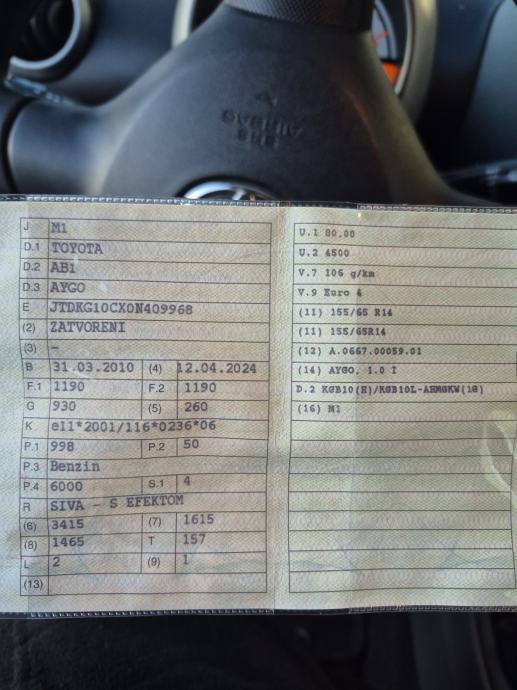 SRS
AIRBAG
J M1
D.1 TOYOTA
D.2 AB1
D.3 AYGO
E JTDKG10CX0N409968
(2) ZATVORENI
(3) -
B 31.03.2010 (4) 12.04.2024
F.1 1190 F.2 1190
G 930 (5) 260
K e11*2001/116*0236*06
P.1 998 P.2 50
P.3 Benzin
P.4 6000 S.1 4
R SIVA - S EFEKTOM
(6) 3415 (7) 1615
(8) 1465 T 157
L 2 (9) 1
(13)
U.1 80.00
U.2 4500
V.7 106 g/km
V.9 Euro 4
(11) 155/65 R14
(11) 155/65R14
(12) A.0667.00059.01
(14) AYGO. 1.0 I
D.2 KGB10(H)/KGB10L-AHMGKW(1G)
(16) M1